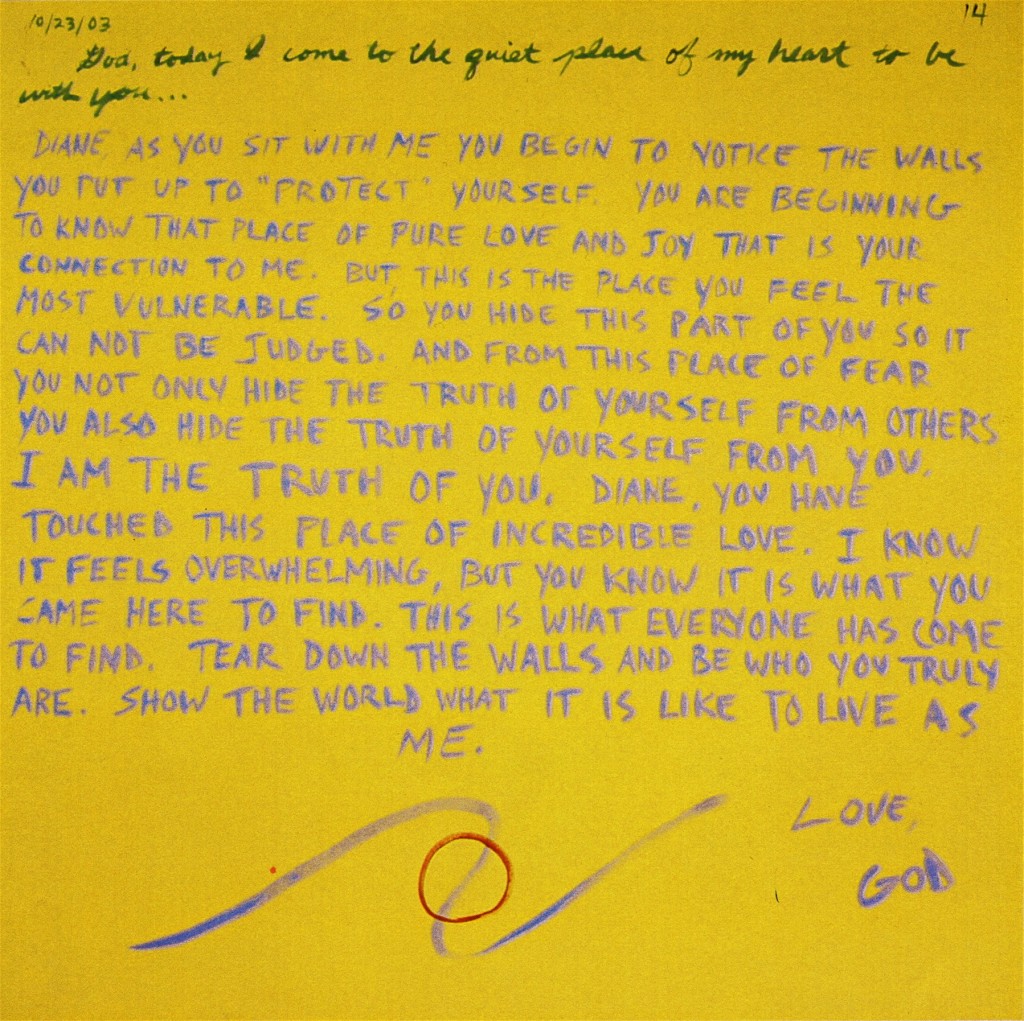 10/23/03
14
God, today I come to the quiet place of my heart to be
with you...
DIANE, AS YOU SIT WITH ME YOU BEGIN TO NOTICE THE WALLS
YOU PUT UP TO "PROTECT" YOURSELF. YOU ARE BEGINNING
TO KNOW THAT PLACE OF PURE LOVE AND JOY THAT IS YOUR
CONNECTION TO ME. BUT, THIS IS THE PLACE YOU FEEL THE
MOST VULNERABLE. SO YOU HIDE THIS PART OF YOU SO IT
CAN NOT BE JUDGED. AND FROM THIS PLACE OF FEAR
YOU NOT ONLY HIDE THE TRUTH OF YOURSELF FROM OTHERS
YOU ALSO HIDE THE TRUTH OF YOURSELF FROM YOU.
I AM THE TRUTH OF YOU. DIANE, YOU HAVE
TOUCHED THIS PLACE OF INCREDIBLE LOVE. I KNOW
IT FEELS OVERWHELMING, BUT YOU KNOW IT IS WHAT YOU
CAME HERE TO FIND. THIS IS WHAT EVERYONE HAS COME
TO FIND. TEAR DOWN THE WALLS AND BE WHO YOU TRULY
ARE. SHOW THE WORLD WHAT IT IS LIKE TO LIVE AS
ME.
LOVE,
GOD